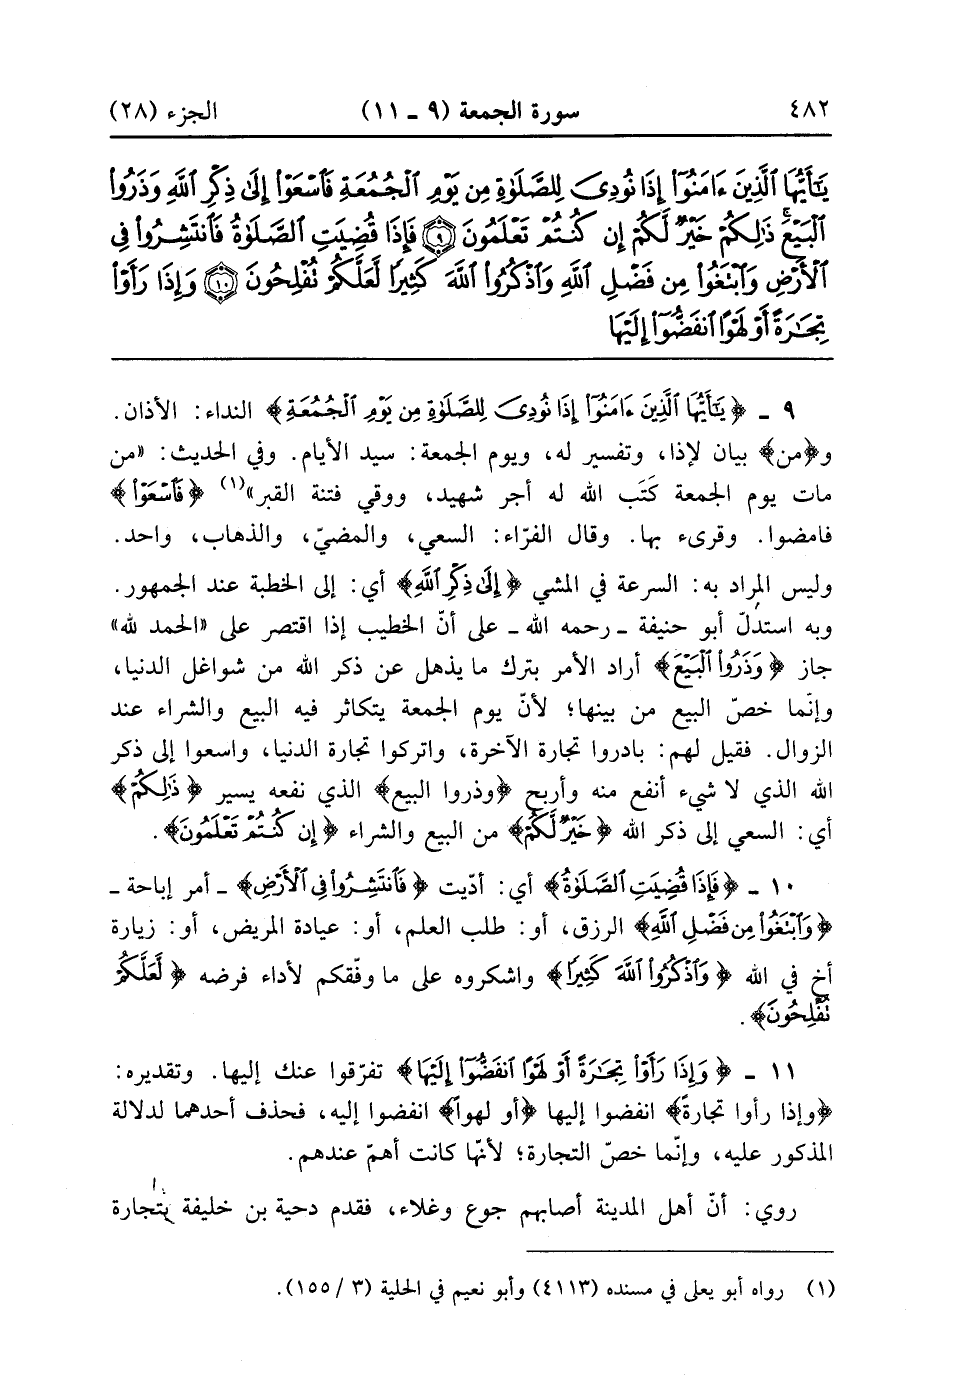 ٤٨٢ سورة الجمعة (٩ ـ ١١) الجزء (٢٨)
يَٰٓأَيُّهَا ٱلَّذِينَ ءَامَنُوٓا۟ إِذَا نُودِىَ لِلصَّلَوٰةِ مِن يَوْمِ ٱلْجُمُعَةِ فَٱسْعَوْا۟ إِلَىٰ ذِكْرِ ٱللَّهِ وَذَرُوا۟
ٱلْبَيْعَ ۚ ذَٰلِكُمْ خَيْرٌ لَّكُمْ إِن كُنتُمْ تَعْلَمُونَ ۝٩ فَإِذَا قُضِيَتِ ٱلصَّلَوٰةُ فَٱنتَشِرُوا۟ فِى
ٱلْأَرْضِ وَٱبْتَغُوا۟ مِن فَضْلِ ٱللَّهِ وَٱذْكُرُوا۟ ٱللَّهَ كَثِيرًا لَّعَلَّكُمْ تُفْلِحُونَ ۝١٠ وَإِذَا رَأَوْا۟
تِجَٰرَةً أَوْ لَهْوًا ٱنفَضُّوٓا۟ إِلَيْهَا
٩ ـ ﴿يَٰٓأَيُّهَا ٱلَّذِينَ ءَامَنُوٓا۟ إِذَا نُودِىَ لِلصَّلَوٰةِ مِن يَوْمِ ٱلْجُمُعَةِ﴾ النداء: الأذان.
و﴿من﴾ بيان لإذا، وتفسير له، ويوم الجمعة: سيد الأيام. وفي الحديث: «من
مات يوم الجمعة كَتَب الله له أجر شهيد، ووقي فتنة القبر»(١) ﴿فَٱسْعَوْا۟﴾
فامضوا. وقرىء بها. وقال الفرّاء: السعي، والمضيّ، والذهاب، واحد.
وليس المراد به: السرعة في المشي ﴿إِلَىٰ ذِكْرِ ٱللَّهِ﴾ أي: إلى الخطبة عند الجمهور.
وبه استدُلّ أبو حنيفة ـ رحمه الله ـ على أنّ الخطيب إذا اقتصر على «الحمد لله»
جاز ﴿وَذَرُوا۟ ٱلْبَيْعَ﴾ أراد الأمر بترك ما يذهل عن ذكر الله من شواغل الدنيا،
وإنّما خصّ البيع من بينها؛ لأنّ يوم الجمعة يتكاثر فيه البيع والشراء عند
الزوال. فقيل لهم: بادروا تجارة الآخرة، واتركوا تجارة الدنيا، واسعوا إلى ذكر
الله الذي لا شيء أنفع منه وأربح ﴿وذروا البيع﴾ الذي نفعه يسير ﴿ذَٰلِكُمْ﴾
أي: السعي إلى ذكر الله ﴿خَيْرٌ لَّكُمْ﴾ من البيع والشراء ﴿إِن كُنتُمْ تَعْلَمُونَ﴾.
١٠ ـ ﴿فَإِذَا قُضِيَتِ ٱلصَّلَوٰةُ﴾ أي: أدّيت ﴿فَٱنتَشِرُوا۟ فِى ٱلْأَرْضِ﴾ ـ أمر إباحة ـ
﴿وَٱبْتَغُوا۟ مِن فَضْلِ ٱللَّهِ﴾ الرزق، أو: طلب العلم، أو: عيادة المريض، أو: زيارة
أخ في الله ﴿وَٱذْكُرُوا۟ ٱللَّهَ كَثِيرًا﴾ واشكروه على ما وفّقكم لأداء فرضه ﴿لَّعَلَّكُمْ
تُفْلِحُونَ﴾.
١١ ـ ﴿وَإِذَا رَأَوْا۟ تِجَٰرَةً أَوْ لَهْوًا ٱنفَضُّوٓا۟ إِلَيْهَا﴾ تفرّقوا عنك إليها. وتقديره:
﴿وإذا رأوا تجارةً﴾ انفضوا إليها ﴿أو لهواً﴾ انفضوا إليه، فحذف أحدهما لدلالة
المذكور عليه، وإنّما خصّ التجارة؛ لأنّها كانت أهمّ عندهم.
روي: أنّ أهل المدينة أصابهم جوع وغلاء، فقدم دحية بن خليفة بتجارة
(١) رواه أبو يعلى في مسنده (٤١١٣) وأبو نعيم في الحلية (٣ / ١٥٥).